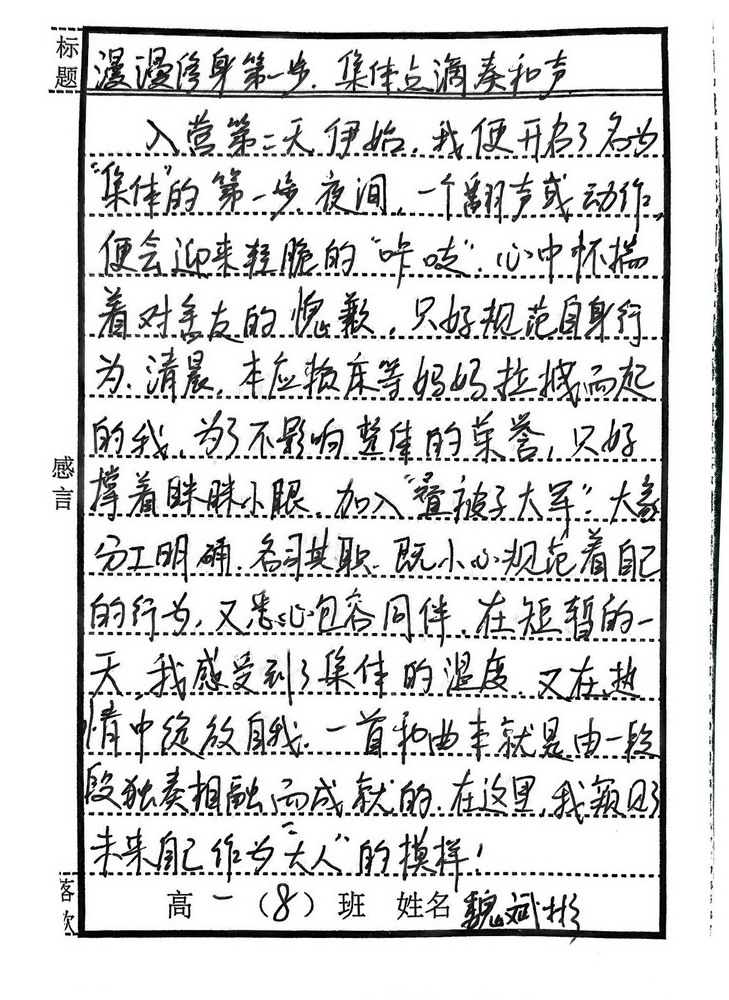 标题
漫漫修身第一步,集体点滴奏和声
入营第二天伊始,我便开启了名为
"集体"的第一步.夜间,一个翻声或动作,
便会迎来轻脆的"咔吱".心中怀揣
着对舍友的愧歉,只好规范自身行
为.清晨,本应赖床等妈妈拉拽而起
的我,为了不影响整体的荣誉,只好
撑着眯眯小眼,加入"叠被子大军".大家
分工明确.各司其职.既小心规范着自己
的行为,又悉心包容同伴.在短暂的一
天,我感受到了集体的温度.又在热
情中绽放自我.一首和曲本就是由一段
段独奏相融而成就的.在这里,我窥见了
未来自己作为"大人"的模样!
感言
落款
高一(8)班 姓名 魏斌彬